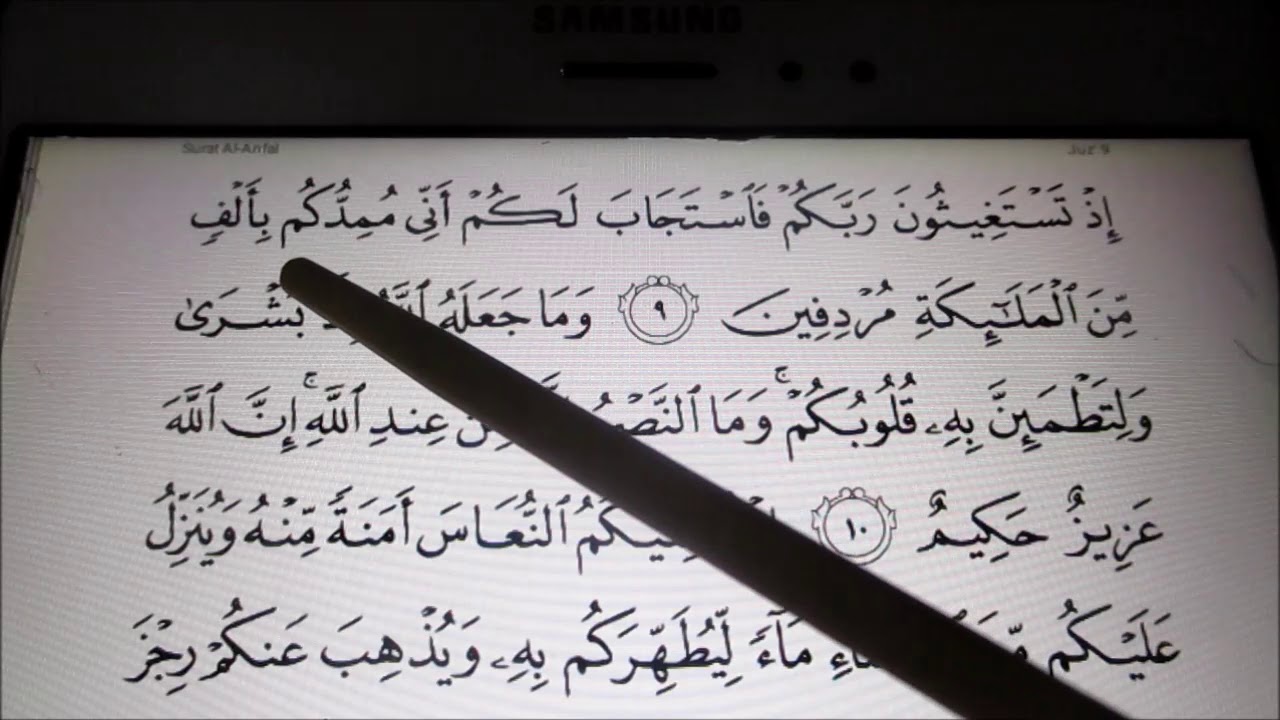 SAMSUNG
Surat Al-Anfal Juz 9
إِذْ تَسْتَغِيثُونَ رَبَّكُمْ فَٱسْتَجَابَ لَكُمْ أَنِّى مُمِدُّكُم بِأَلْفٍ
مِّنَ ٱلْمَلَٰٓئِكَةِ مُرْدِفِينَ ٩ وَمَا جَعَلَهُ بُشْرَىٰ
وَلِتَطْمَئِنَّ بِهِۦ قُلُوبُكُمْ ۚ وَمَا عِندِ ٱللَّهِ ۚ إِنَّ ٱللَّهَ
عَزِيزٌ حَكِيمٌ ١٠ ٱلنُّعَاسَ أَمَنَةً مِّنْهُ وَيُنَزِّلُ
عَلَيْكُم مَآءً لِّيُطَهِّرَكُم بِهِۦ وَيُذْهِبَ عَنكُمْ رِجْزَ